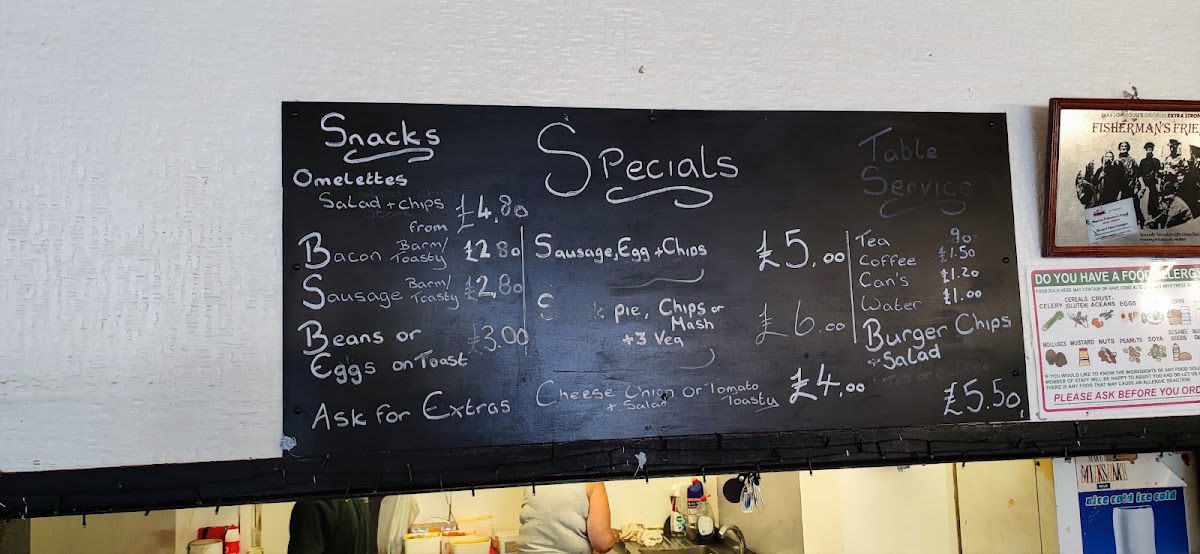 Snacks
Omelettes
Salad + Chips
from
£4.80
Bacon Barm/Toasty £2.80
Sausage Barm/Toasty £2.80
Beans or
Eggs on Toast
£3.00
Ask for Extras
Specials
Sausage, Egg + Chips £5.00
pie, Chips or
Mash
+3 Veg
£6.00
Cheese Onion or Tomato
+ Salad Toasty
£4.00
Table
Service
Tea 90
Coffee £1.50
Can's £1.20
Water £1.00
Burger Chips
+ Salad
Tea or Coffee
£5.50
EXTRA STRONG
FISHERMAN'S FRIE
DO YOU HAVE A FOOD ALLERGY
FOOD SOLD HERE MAY CONTAIN OR HAVE
CELERY CEREALS (GLUTEN) CRUST-ACEANS EGGS
LUPIN
MOLLUSCS MUSTARD NUTS PEANUTS SOYA SESAME SEEDS
IF YOU WOULD LIKE TO KNOW THE INGREDIENTS OF ANY FOOD
MEMBER OF STAFF WILL BE HAPPY TO ASSIST YOU AND DO LET US
THERE IS ANY FOOD THAT MAY CAUSE AN ALLERGIC REACTION.
PLEASE ASK BEFORE YOU ORD
MILKSHAKE
nice cold ice cold